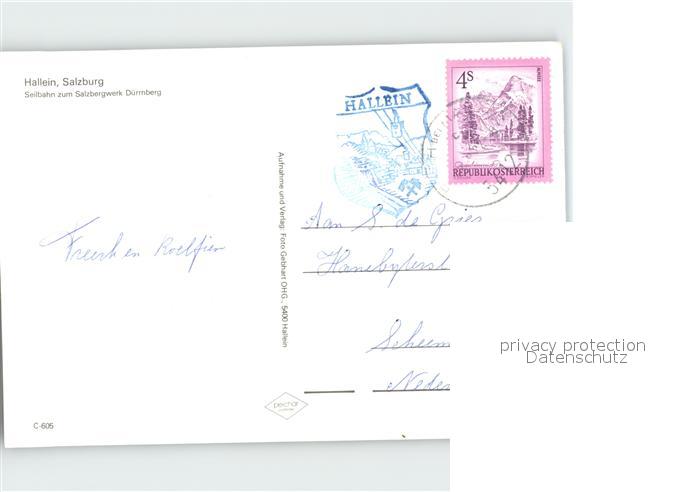 Hallein, Salzburg
Seilbahn zum Salzbergwerk Dürrnberg
HALLEIN
4S
ALMSEE
REPUBLIK ÖSTERREICH
5412
Aufnahme und Verlag: Foto Gebhart OHG., 5400 Hallein
Aan S. de Gries
Freerk en Roelfien
Scheem
Neder
privacy protection
Datenschutz
C-605